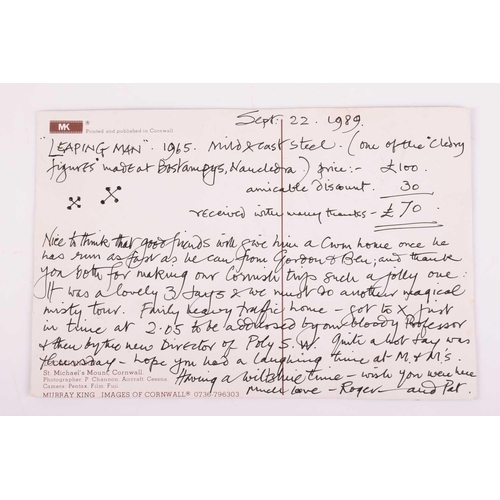 Sept. 22. 1989.
MK ®
Printed and published in Cornwall
"LEAPING MAN". 1965. Mild & cast steel. (one of the "Cledry
figures" made at Bostampys, Nancledra.) price:- £100.
amicable discount. 30
received with many thanks - £70.
Nice to think that good friends will give him a Cwm home once he
has run as fast as he can from Gordon & Bev; and thank
you both for making our Cornish trip such a jolly one:
It was a lovely 3 days & we must do another magical
misty tour. Fairly heavy traffic home - got to X just
in time at 2:05 to be addressed by one bloody Professor
& then by the new Director of Poly S.W. Quite a hot day was
thursday - hope you had a laughing time at M & M's.
St. Michael's Mount, Cornwall.
Photographer: F. Channon. Aircraft: Cessna.
Camera: Pentax. Film: Fuji.
Having a wiltshire time - wish you were here
Much love - Roger - and Pat.
MURRAY KING IMAGES OF CORNWALL® 0736-796303